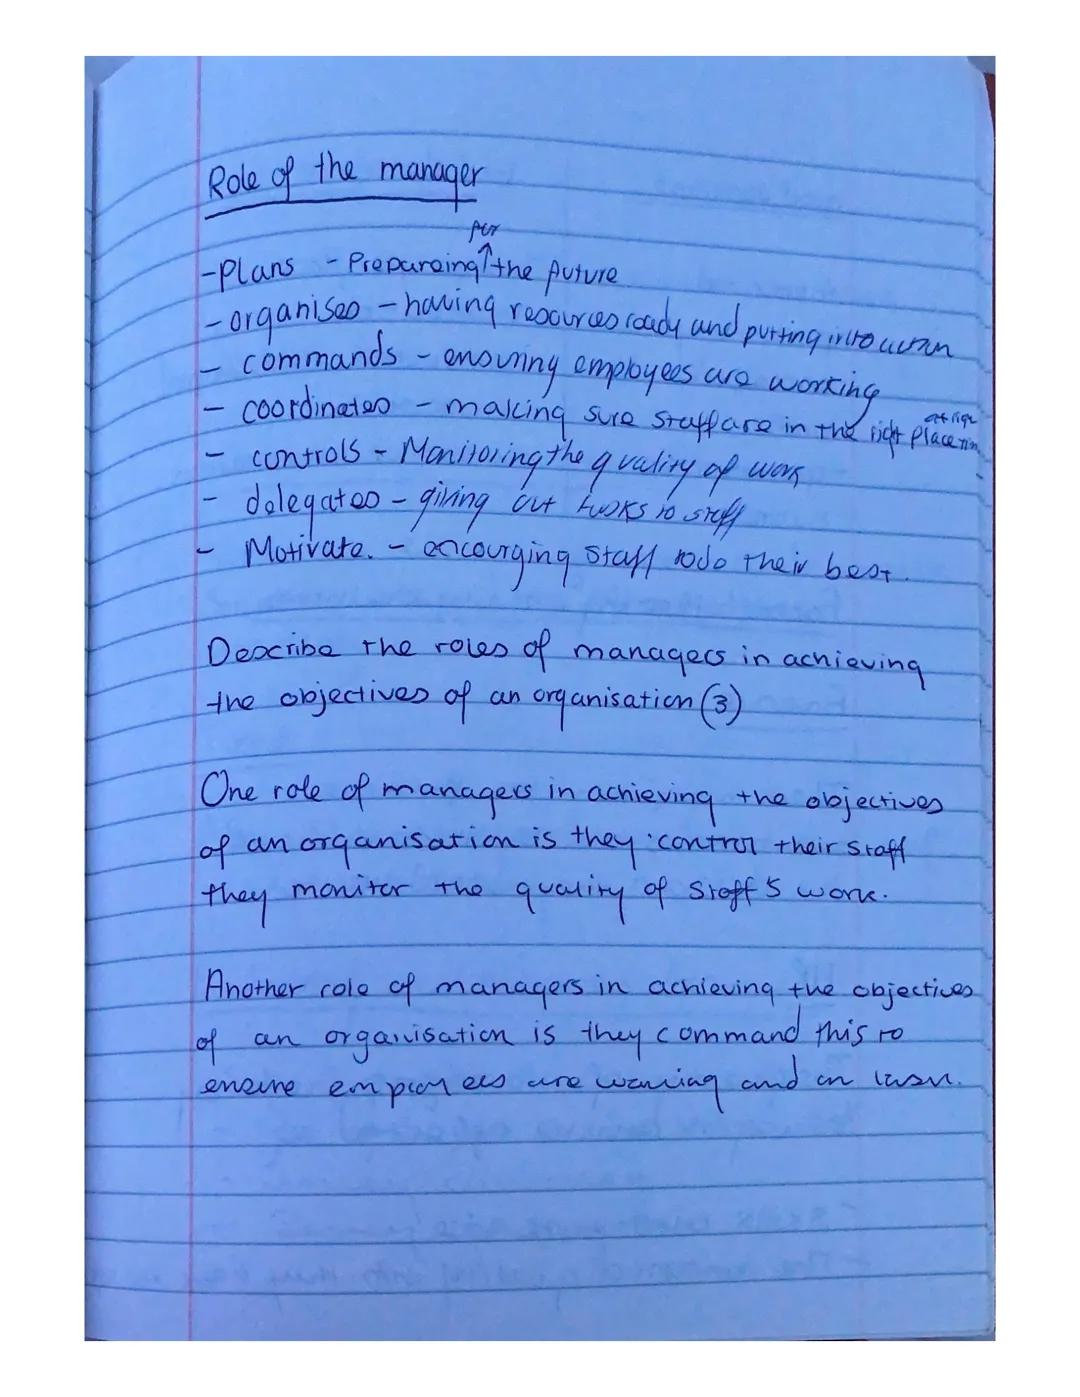 Role of the manager
for
-Plans - Preparaing ↑ the future
- organises - having resources ready and putting into action
- commands - ensuring employees are working
- coordinates - making sure staff are in the right place
- controls - Monitoring the quality of work
- delegates - giving out tasks to staff
- Motivate. - encourging staff to do their best.
Describe the roles of managers in achieving
the objectives of an organisation (3)
One role of managers in achieving the objectives
of an organisation is they control their staff
they monitor the quality of staff's work.
Another role of managers in achieving the objectives
of an organisation is they command this to
ensure employees are working and on